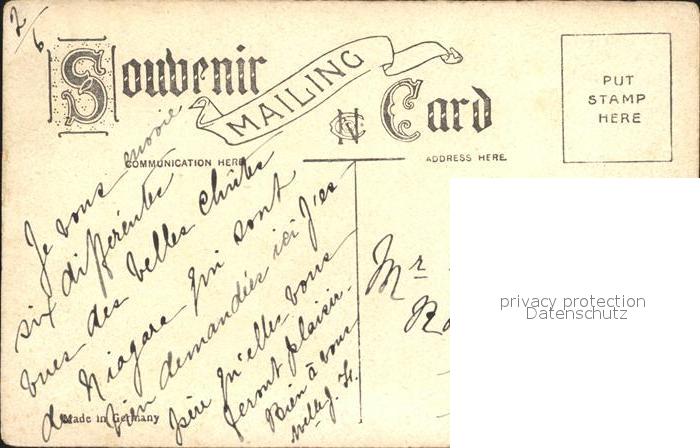 2/6
Souvenir MAILING Card
PUT
STAMP
HERE
COMMUNICATION HERE
ADDRESS HERE.
Je vous envoie
six différentes
vues des belles chûtes
de Niagara qui sont
bien demandées ici J'es-
père qu'elles vous
feront plaisir.
Bien à vous
Melle J. H.
Mr
privacy protection
Datenschutz
Made in Germany